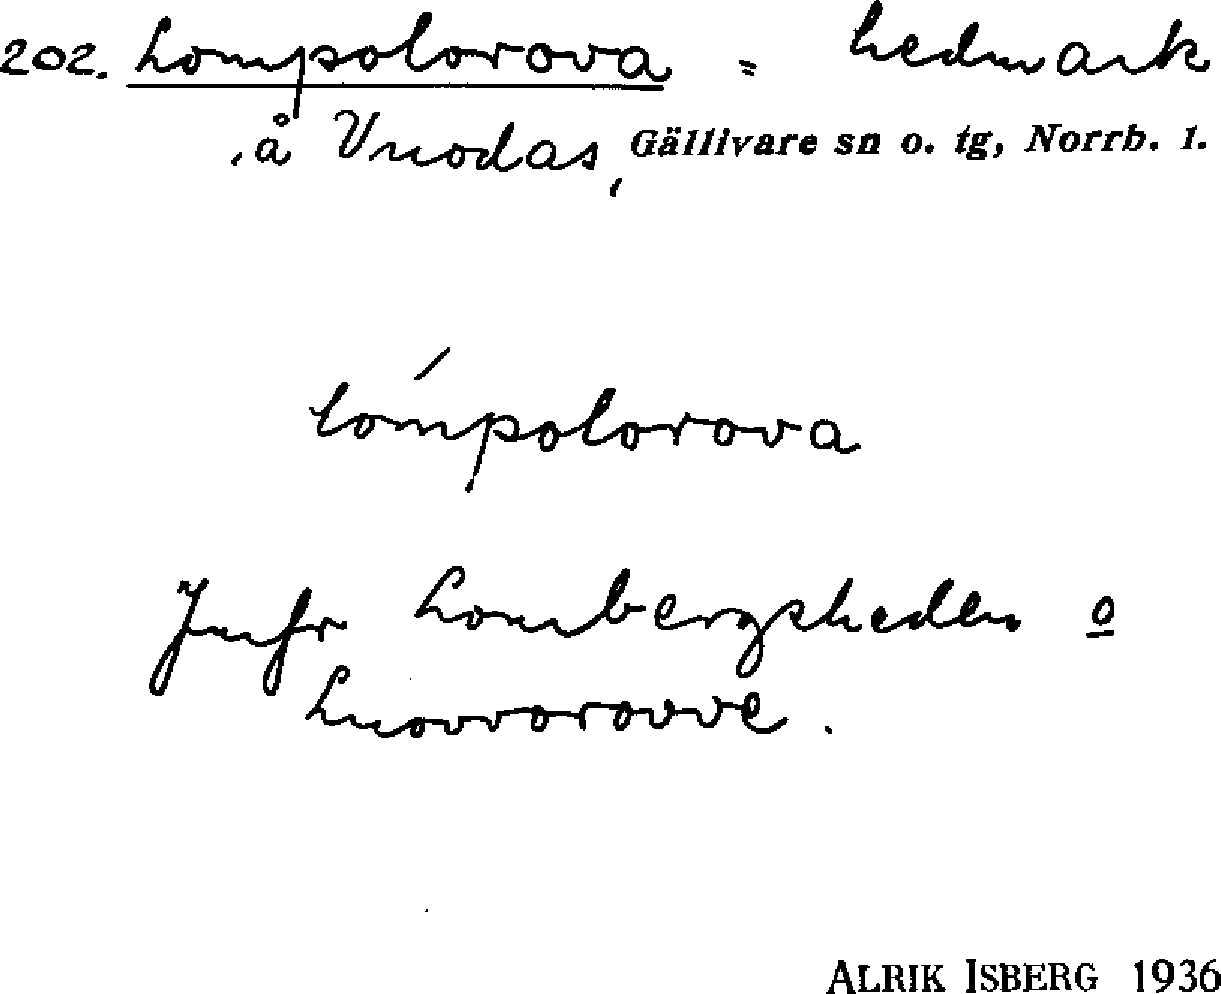 202. Lompolorova = hedmark
å Vuodas, Gällivare sn o. tg, Norrb. l.
lómpolorova
Jmfr Lombergsheden o
Luovvorovve.
ALRIK ISBERG 1936